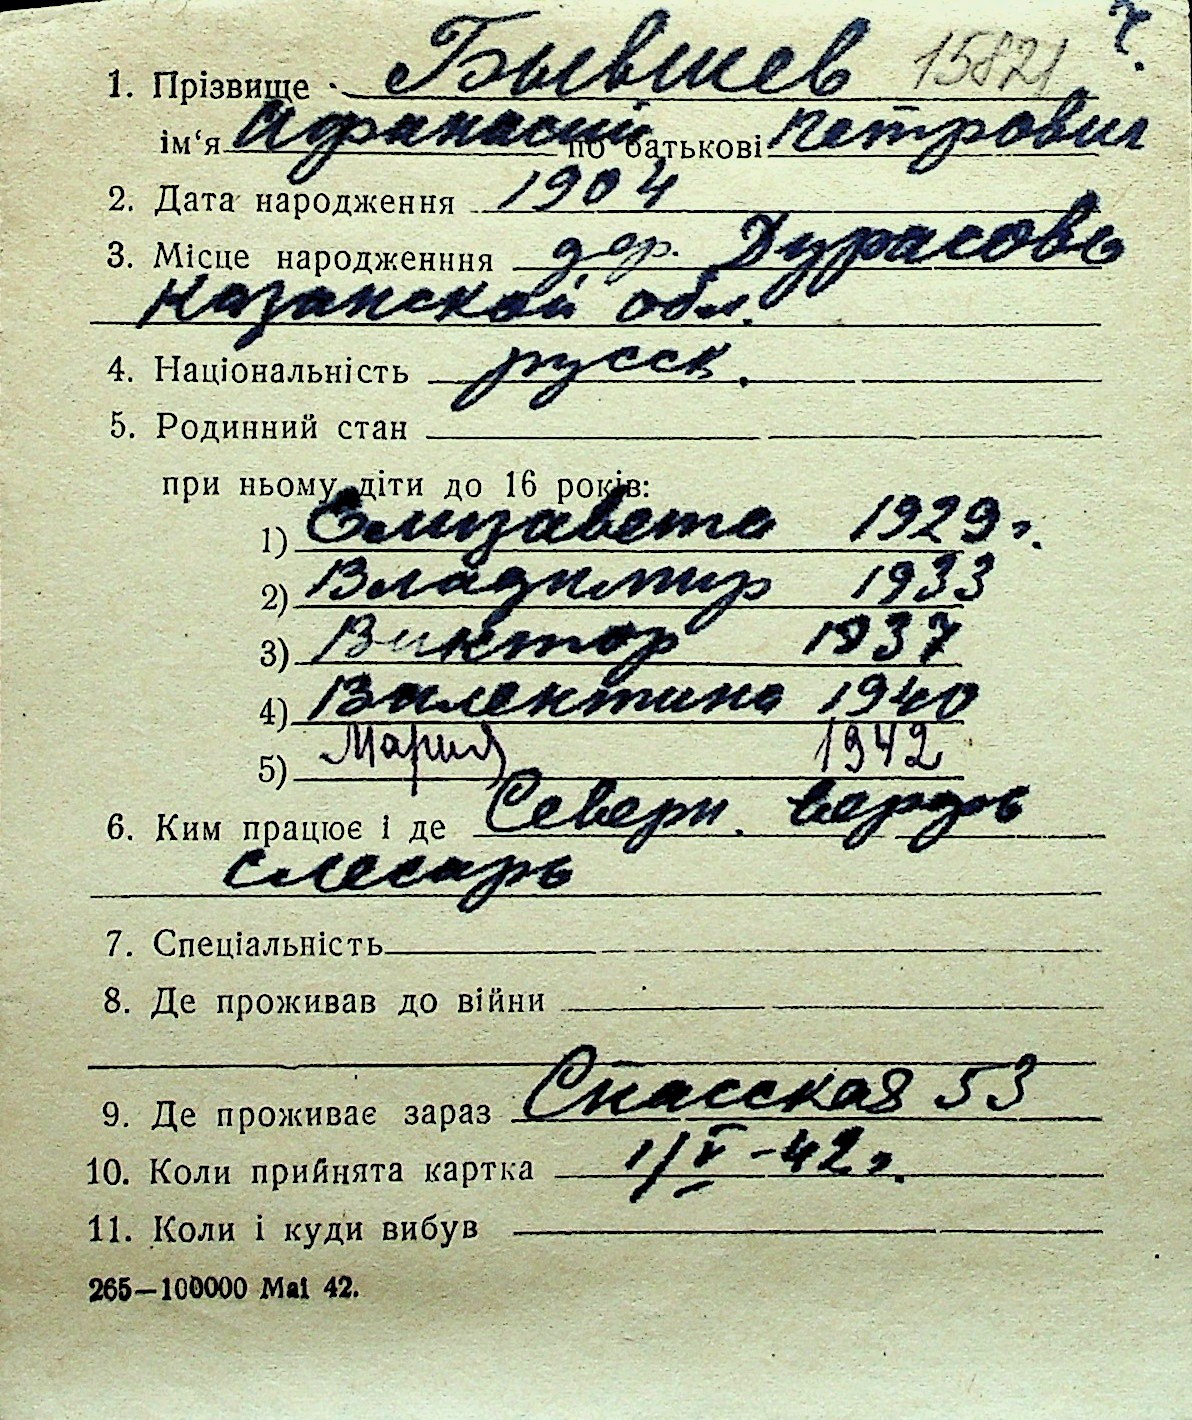 ч.
1. Прізвище Бывшев 15821
ім‘я Афанасий по батькові Петрович
2. Дата народження 1904
3. Місце народженння дер. Дурасово
Казанской обл.
4. Національність русск.
5. Родинний стан
при ньому діти до 16 років:
1) Елизавета 1929 г.
2) Владимир 1933
3) Виктор 1937
4) Валентина 1940
5) Мария 1942
6. Ким працює і де Северн. верфь
слесарь
7. Спеціальність
8. Де проживав до війни
9. Де проживає зараз Спасская 53
10. Коли прийнята картка 1/V-42 г.
11. Коли і куди вибув
265—100000 Mai 42.